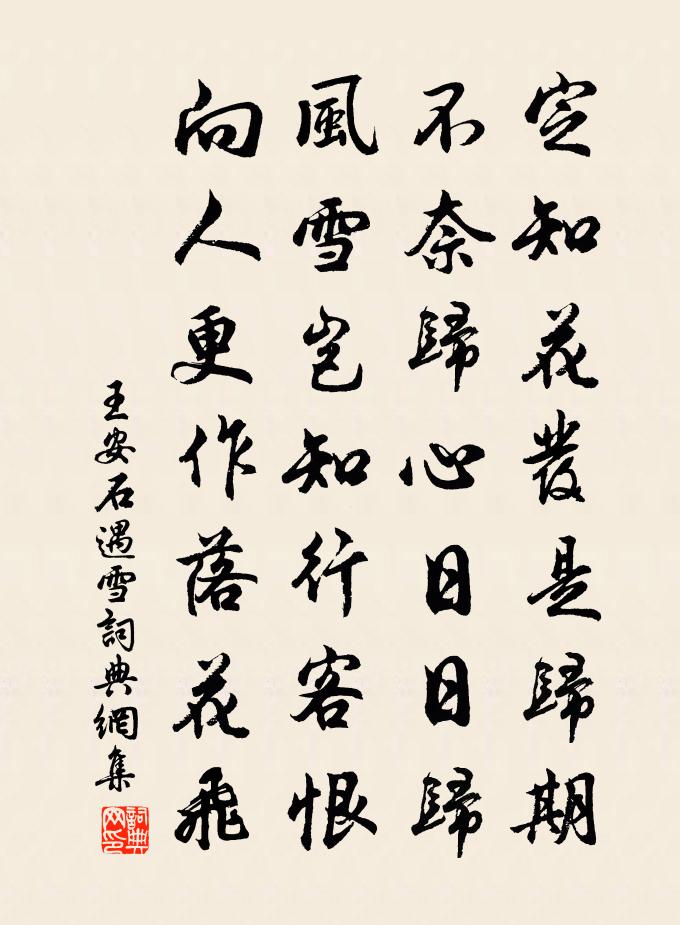 定知花發是歸期
不奈歸心日日歸
風雪豈知行客恨
向人更作落花飛
王安石遇雪詞典網集
詞典網印